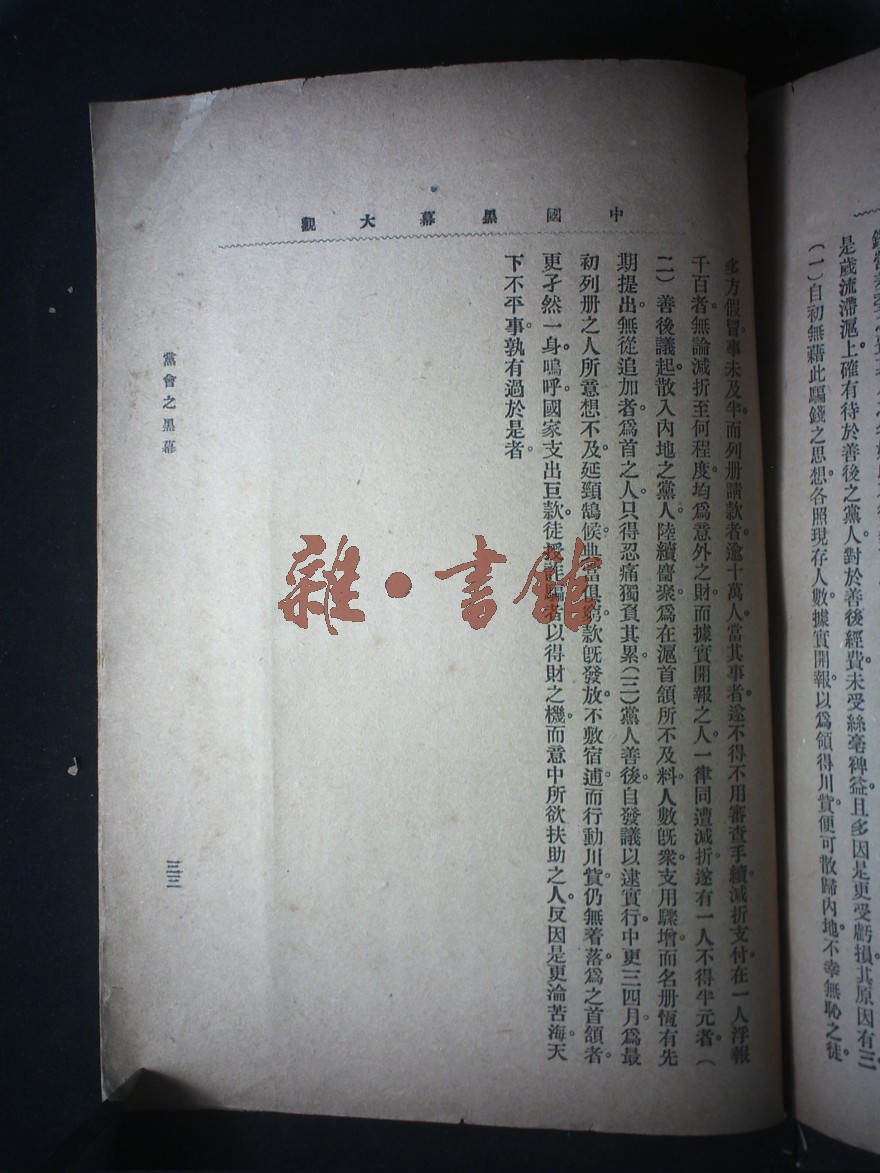 是歲流滯滬上確有待於善後之黨人對於善後經費未受絲毫裨益且多因是更受虧損其原因有三
（一）自初無藉此騙錢之思想各照現存人數據實開報以爲領得川貲便可散歸內地不幸無恥之徒
中國黑幕大觀
多方假冒事未及半而列册請款者逾十萬人當其事者遂不得不用審查手續減折支付在一人浮報
千百者無論減折至何程度均爲意外之財而據實開報之人一律同遭減折遂有一人不得半元者（
二）善後議起散入內地之黨人陸續麕聚爲在滬首領所不及料人數旣衆支用驟增而名册恆有先
期提出無從追加者爲首之人只得忍痛獨負其累（三）黨人善後自發議以逮實行中更三四月爲最
初列册之人所意想不及延頸鵠候典當俱窮款旣發放不敷宿逋而行動川貲仍無着落爲之首領者
更孑然一身嗚呼國家支出巨款徒授詐騙者以得財之機而意中所欲扶助之人反因是更淪苦海天
下不平事孰有過於是者
黨會之黑幕
三三
雜·書館